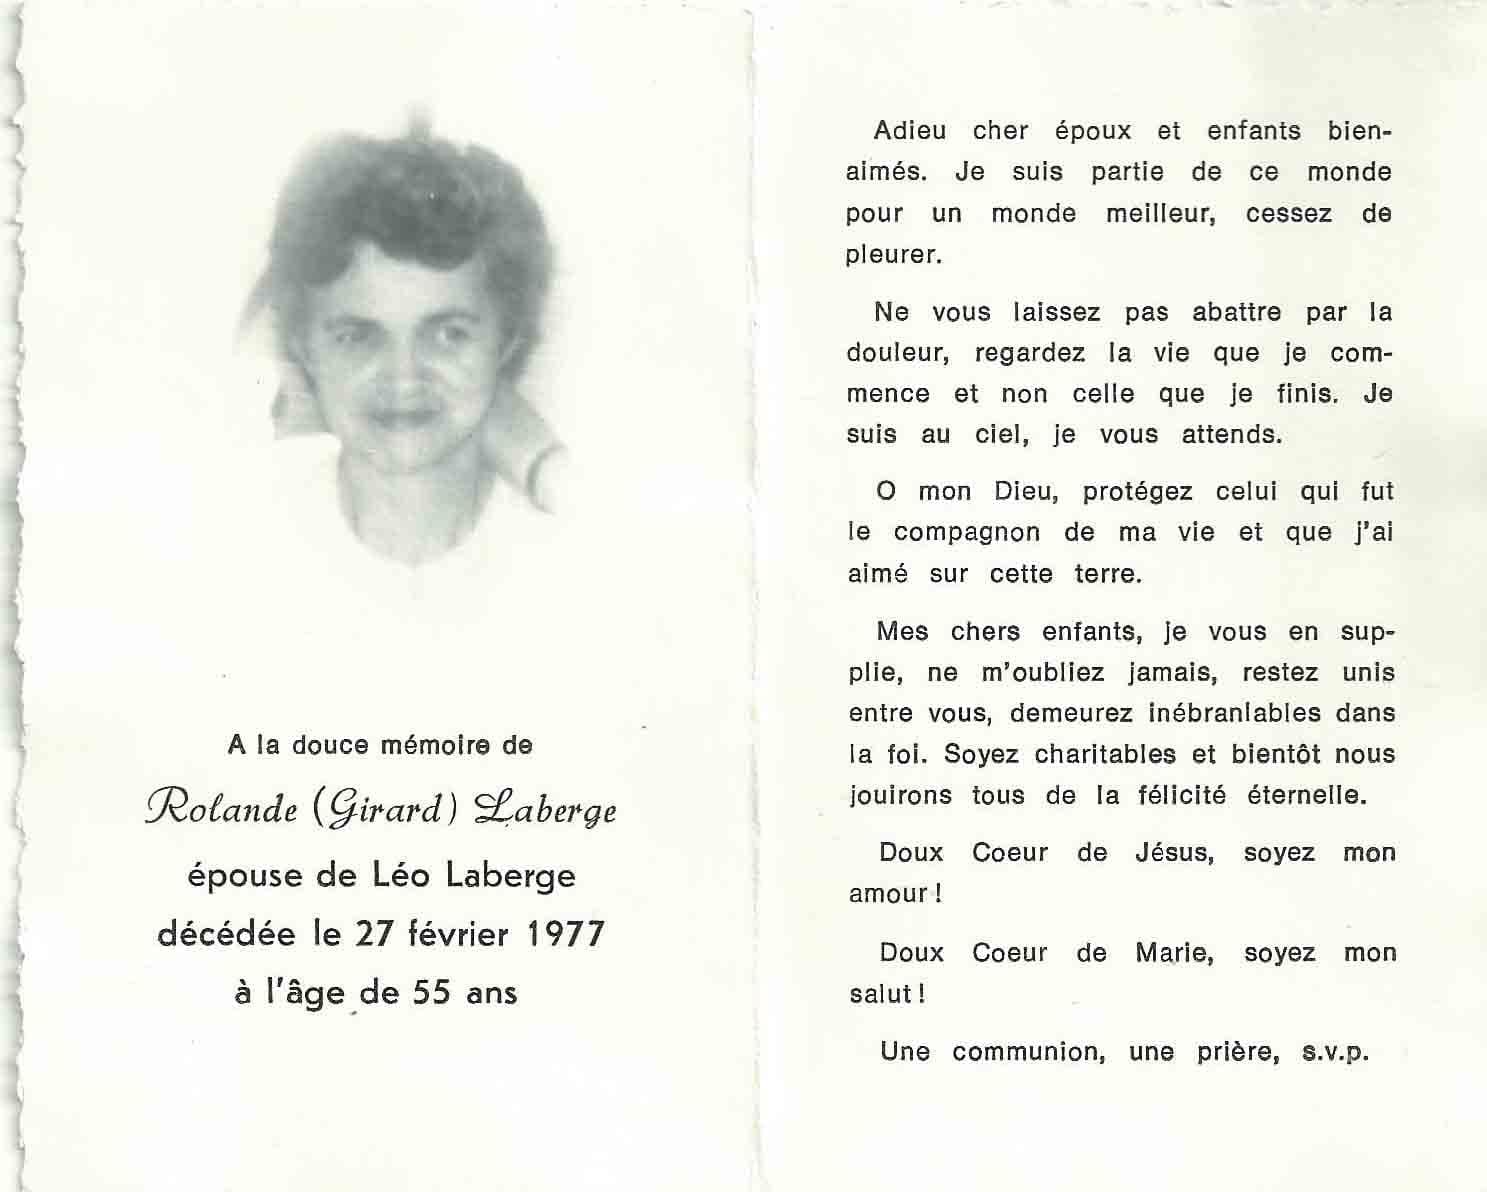 A la douce mémoire de
Rolande (Girard) Laberge
épouse de Léo Laberge
décédée le 27 février 1977
à l'âge de 55 ans
Adieu cher époux et enfants bien-
aimés. Je suis partie de ce monde
pour un monde meilleur, cessez de
pleurer.
Ne vous laissez pas abattre par la
douleur, regardez la vie que je com-
mence et non celle que je finis. Je
suis au ciel, je vous attends.
O mon Dieu, protégez celui qui fut
le compagnon de ma vie et que j'ai
aimé sur cette terre.
Mes chers enfants, je vous en sup-
plie, ne m'oubliez jamais, restez unis
entre vous, demeurez inébranlables dans
la foi. Soyez charitables et bientôt nous
jouirons tous de la félicité éternelle.
Doux Coeur de Jésus, soyez mon
amour!
Doux Coeur de Marie, soyez mon
salut!
Une communion, une prière, s.v.p.